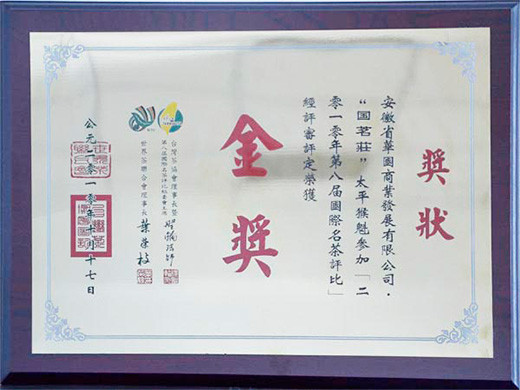 獎狀
安徽省華國商業發展有限公司·
“国茗莊”太平猴魁參加「二
零一零年第八届國際名茶評比」
經評審評定榮獲
金獎
台灣茶協會理事長暨
第八屆國際名茶評比組委會主席
世界茶聯合會理事長
公元二零一零年七月十七日